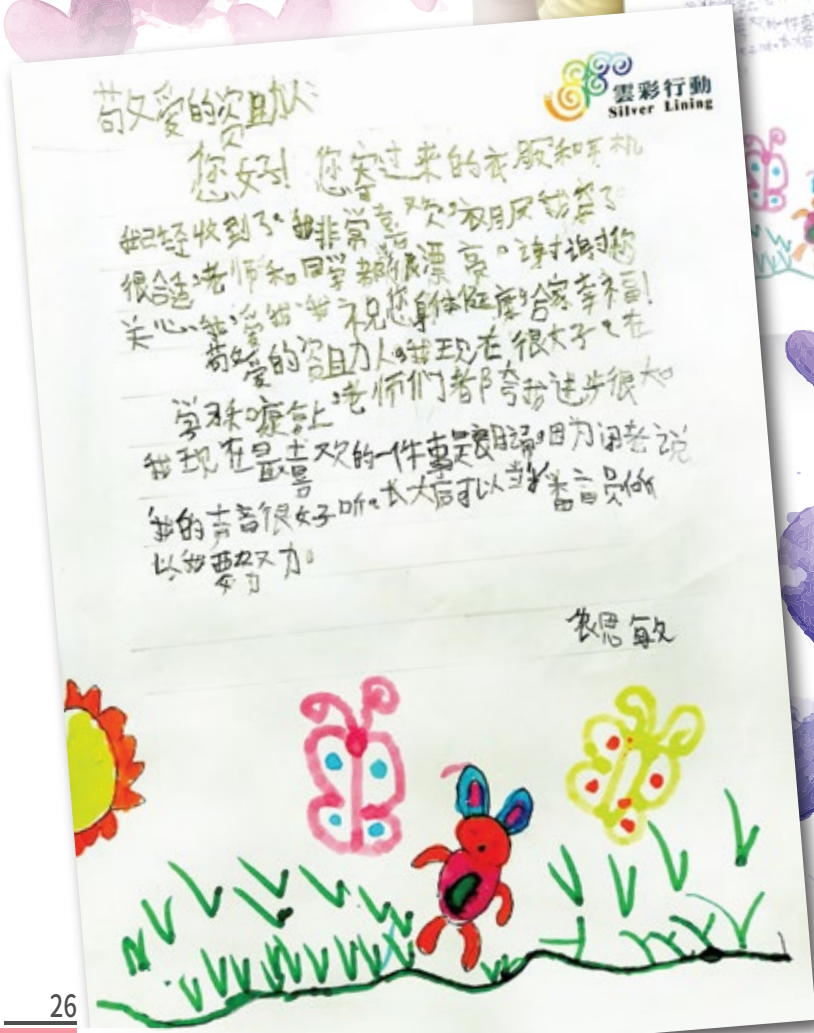 雲彩行動
Silver Lining
敬爱的资助人:
您好! 您寄过来的衣服和手机
我已经收到了。我非常喜欢。衣服我穿了
很合适。老师和同学都很漂亮。谢谢您
关心我爱我。我祝您身体健康合家幸福!
敬爱的资助人。我现在很好。在
学和康上老师们都夸我进步很大。
我现在最喜欢的一件事是朗诵。因为老说
我的声音很好听。长大后可以当番音员所
以我要努力。
思敏
26